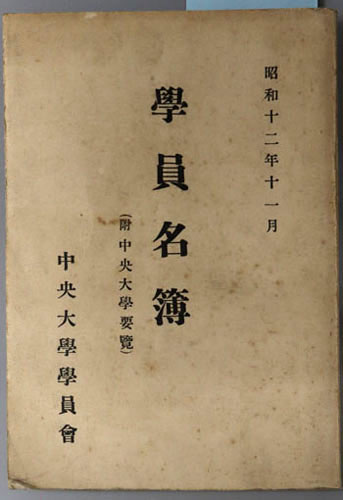 昭和十二年十一月
學員名簿
（附中央大學要覽）
中央大學學員會